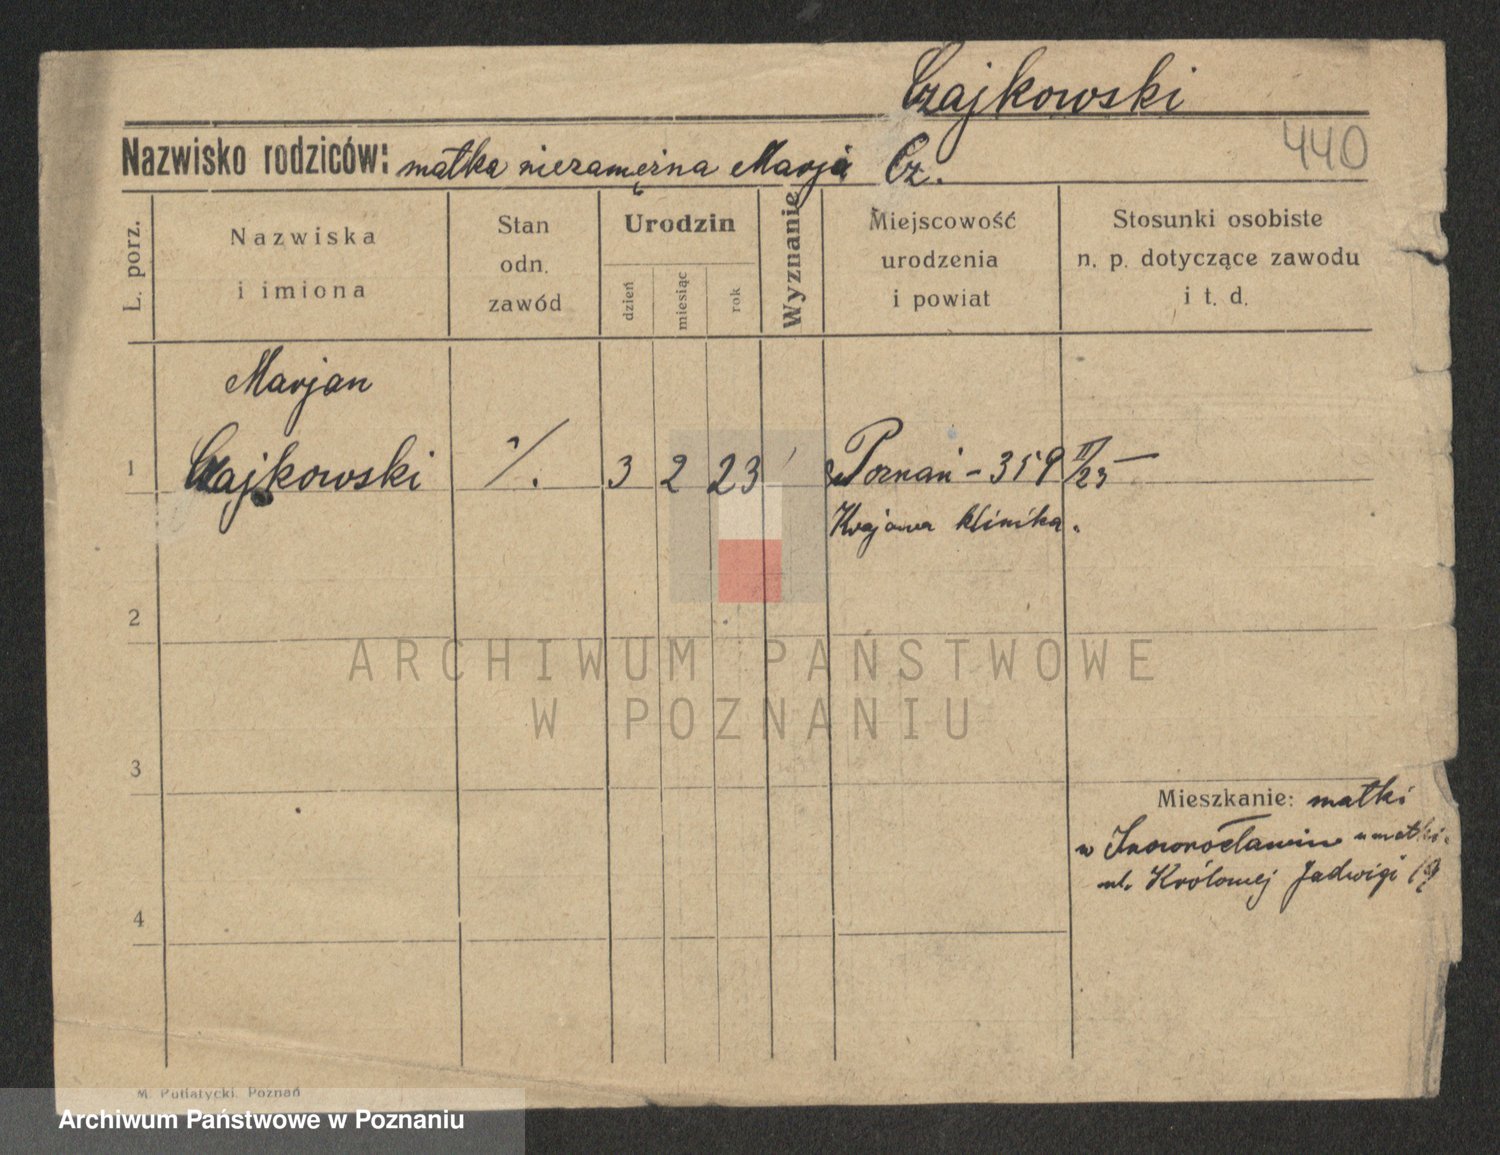 Czajkowski
440
Nazwisko rodziców: matka niezamężna Marja Cz.
L. porz.
Nazwiska
i imiona
Stan
odn.
zawód
Urodzin
dzień
miesiąc
rok
Wyznanie
Miejscowość
urodzenia
i powiat
Stosunki osobiste
n. p. dotyczące zawodu
i t. d.
Marjan
1 Czajkowski ·/. 3 2 23 Poznań - 359 II/23 -
Krajowa klinika.
2
ARCHIWUM PAŃSTWOWE
W POZNANIU
3
Mieszkanie: matki
w Inowrocławiu u matki.
ul. Królowej Jadwigi 19
4
M. Putiatycki, Poznań
Archiwum Państwowe w Poznaniu